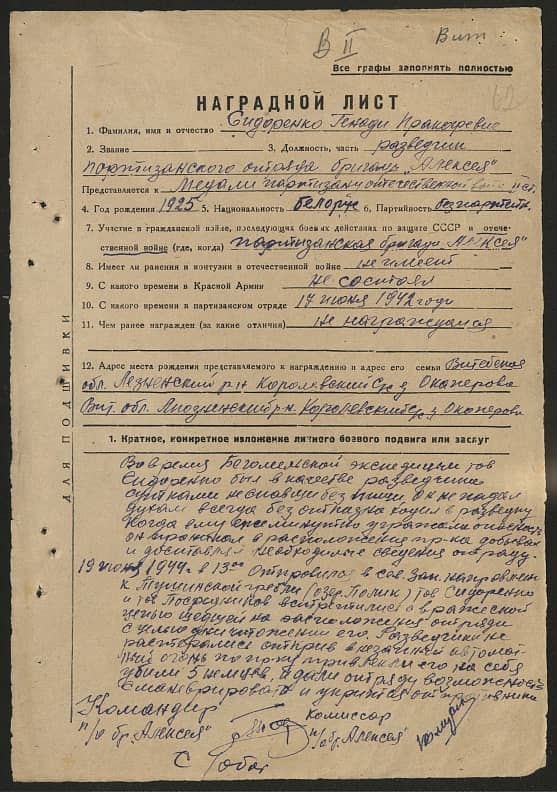 В II
Вит
Все графы заполнять полностью
62
НАГРАДНОЙ ЛИСТ
1. Фамилия, имя и отчество Сидоренко Генади
2. Звание 3. Должность, часть разведчик
партизанского отряда бригады „Алексея"
Представляется к Медали партизану отечественной войны II ст.
4. Год рождения 1925 5. Национальность белорус 6. Партийность безпартейн.
7. Участие в гражданской войне, последующих боевых действиях по защите СССР и отече-
ственной войне (где, когда) партизанская бригада Алексея"
8. Имеет ли ранения и контузии в отечественной войне не имеет
9. С какого времени в Красной Армии не состоял
10. С какого времени в партизанском отряде 17 июня 1942 года
11. Чем ранее награжден (за какие отличия) не награждался
12. Адрес места рождения представляемого к награждению и адрес его семьи Витебская
обл. Лезненский р-н д
Вит. обл. Лиозненский р-н. д
ДЛЯ ПОДШИВКИ
1. Краткое, конкретное изложение личного боевого подвига или заслуг
Во время экспедиции тов
Сидоренко был в качестве разведчика
сутками не спавши без пищи, он не падал
духом всегда без отказно ходил в разведку
Когда ему ежеминутно угрожала опасность
он в расположения пр-ка добывал
и доставлял необходимые сведения отряду.
19 июня 1944 в 13⁰⁰ отправился в направлен
к гребли (озер. Полик) тов Сидоренко
и тов встретились с вражеской
цепью шедшей на расположения отряда
с целью уничтожения его. Разведчики не
растерялись открыв внезапный автомат-
ный огонь по пр-ку привлекли его на себя
убили 5 немцев, и дали отряду возможность
сманеврировать и укрытся от противника
Командир Комиссар
п/о бр. „Алексея" п/о бр. „Алексея"